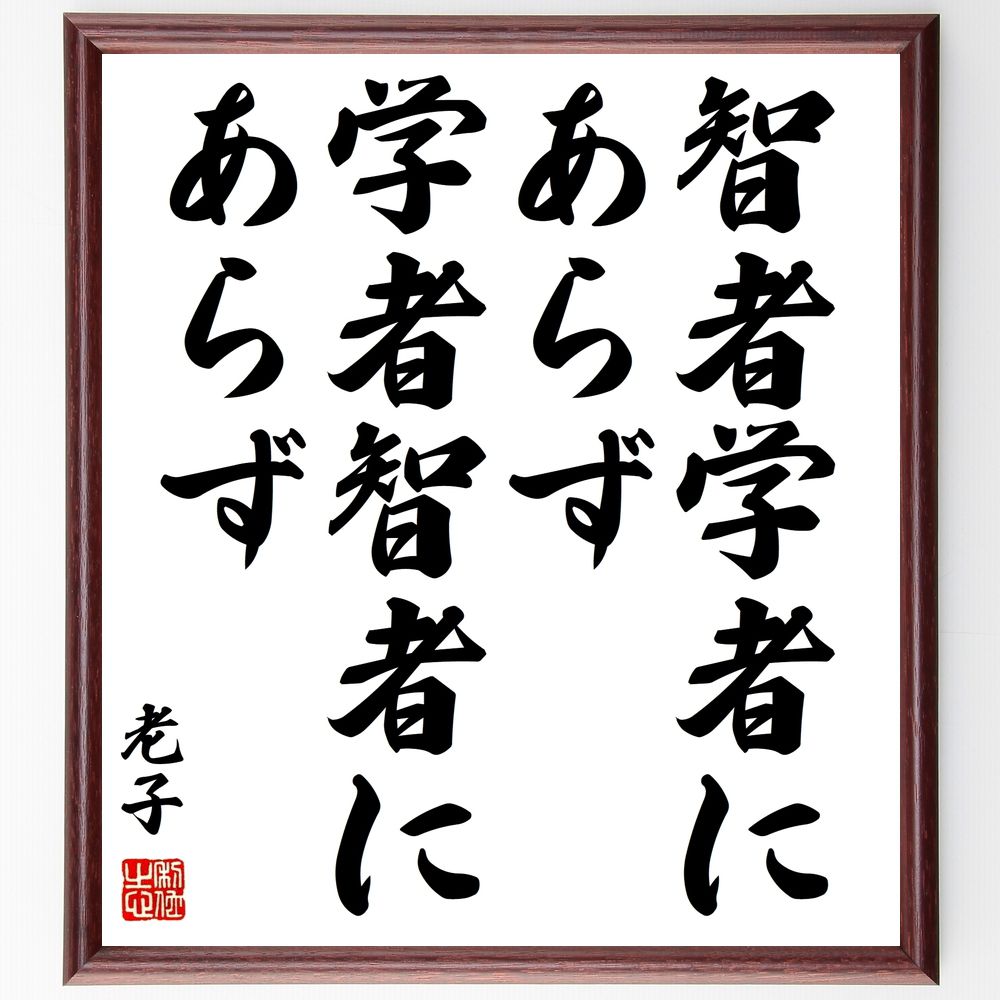 智者学者に
あらず
学者智者に
あらず
老子